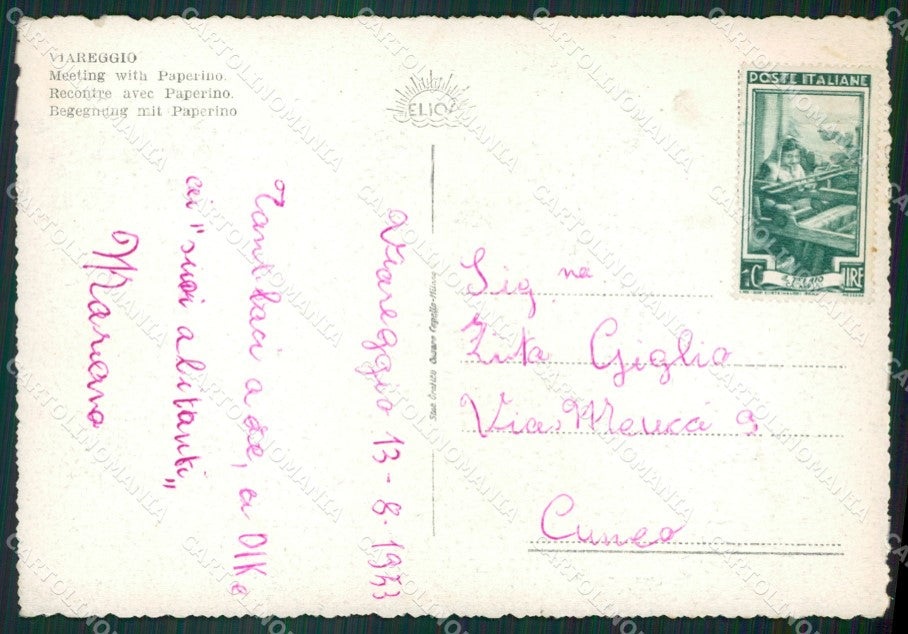 VIAREGGIO
Meeting with Paperino.
Recontre avec Paperino.
Begegnung mit Paperino
ELIO
POSTE ITALIANE
LIRE
Viareggio 13-8-1953
Tanti baci a te, a
ai "suoi abitanti"
Mariano
Sig.na
Zita Giglio
Via Meucci 9
Cuneo
CARTOLINOMANIA